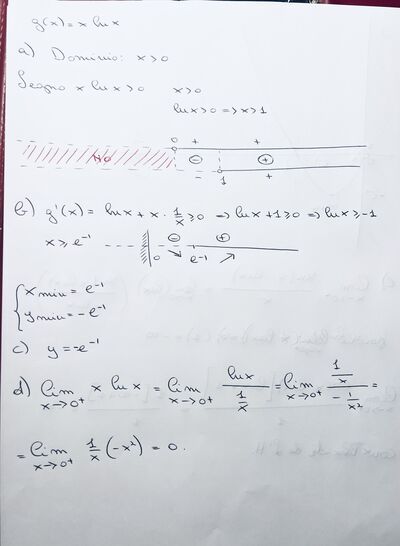 g(x) = x ln x
a) Dominio: x>0
Segno x ln x>0 x>0
ln x>0 => x>1
0 + +
NO - +
- 1 +
b) g'(x) = ln x + x · 1/x ≥ 0 => ln x + 1 ≥ 0 => ln x ≥ -1
x ≥ e⁻¹ - +
0 ↘ e⁻¹ ↗
{ x min = e⁻¹
y min = -e⁻¹
c) y = -e⁻¹
d) lim x→0⁺ x ln x = lim x→0⁺ ln x / (1/x) = lim x→0⁺ (1/x) / (-1/x²) =
= lim x→0⁺ 1/x (-x²) = 0.